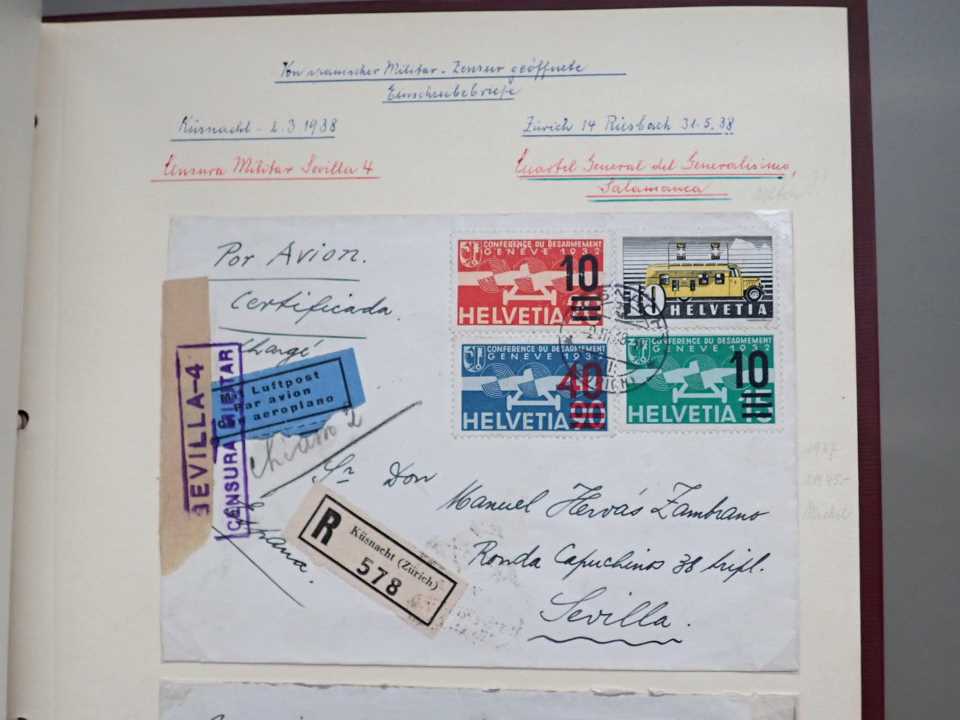 Von spanischer Militär-Zensur geöffnete
Einschreibebriefe
Küsnacht - 2.3 1938
Zürich 14 Riesbach 31.5.38
Censura Militar Sevilla 4
Cuartel General del Generalisimo,
Salamanca
Por Avion.
Certificada.
Chargé
CONFERENCE DU DESARMEMENT
GENEVE 1932
10
HELVETIA
10
HELVETIA
CONFERENCE DU DESARMEMENT
GENEVE 1932
40
90
HELVETIA
GENEVE 1932
10
HELVETIA
Luftpost
par avion
aeroplano
SEVILLA-4
CENSURA MILITAR
Chiasso 2
Sr Don
Manuel Hervás Zambrano
Ronda Capuchinos 38 dupl.
Sevilla.
España.
R
Küsnacht (Zürich)
578
1937
Michel